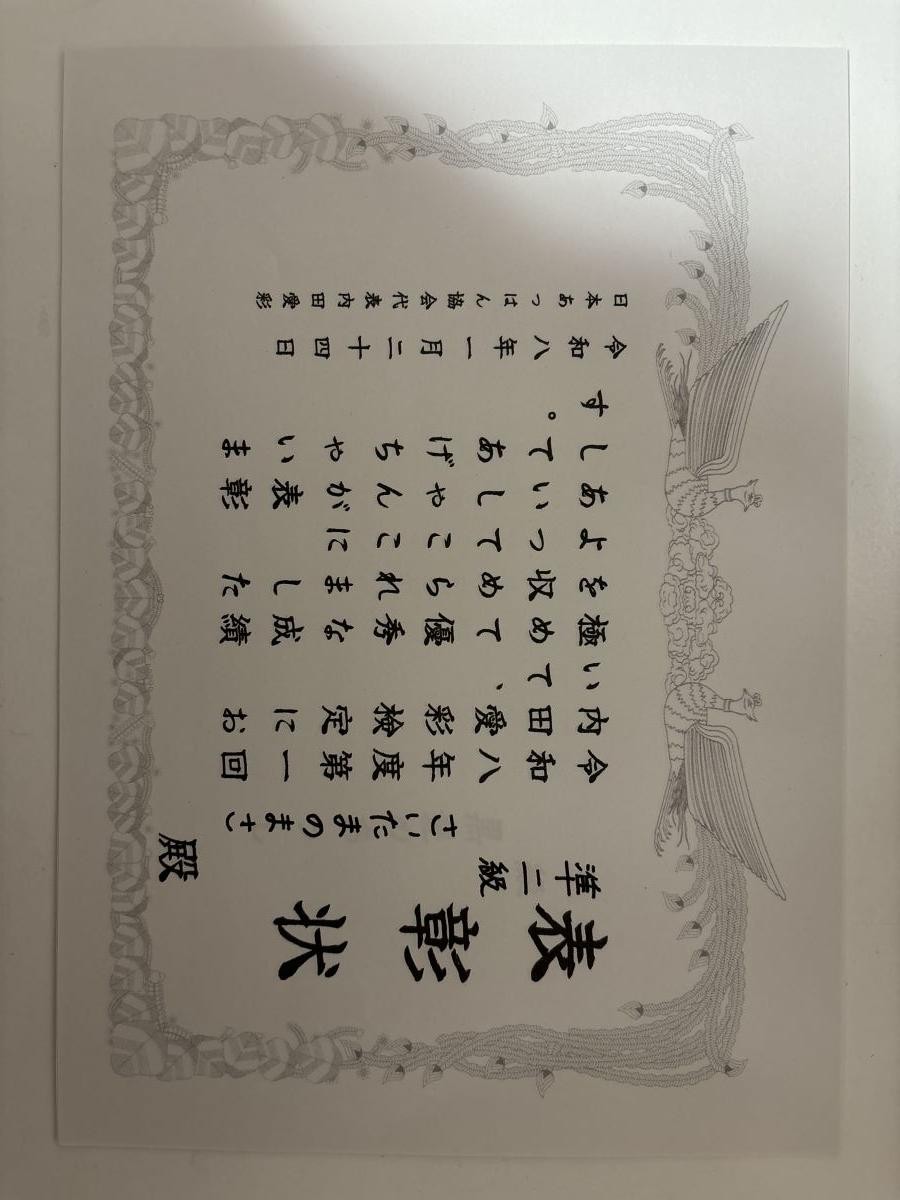 表彰状
準二級
さいたまのまさ
殿
令和八年度第一回
内田愛彩検定にお
いて、
極めて優秀な成績
を収められました
よってここに
あいしゃんが表彰
してあげちゃいま
す。
令和八年一月二十四日
日本あっはん協会代表内田愛彩